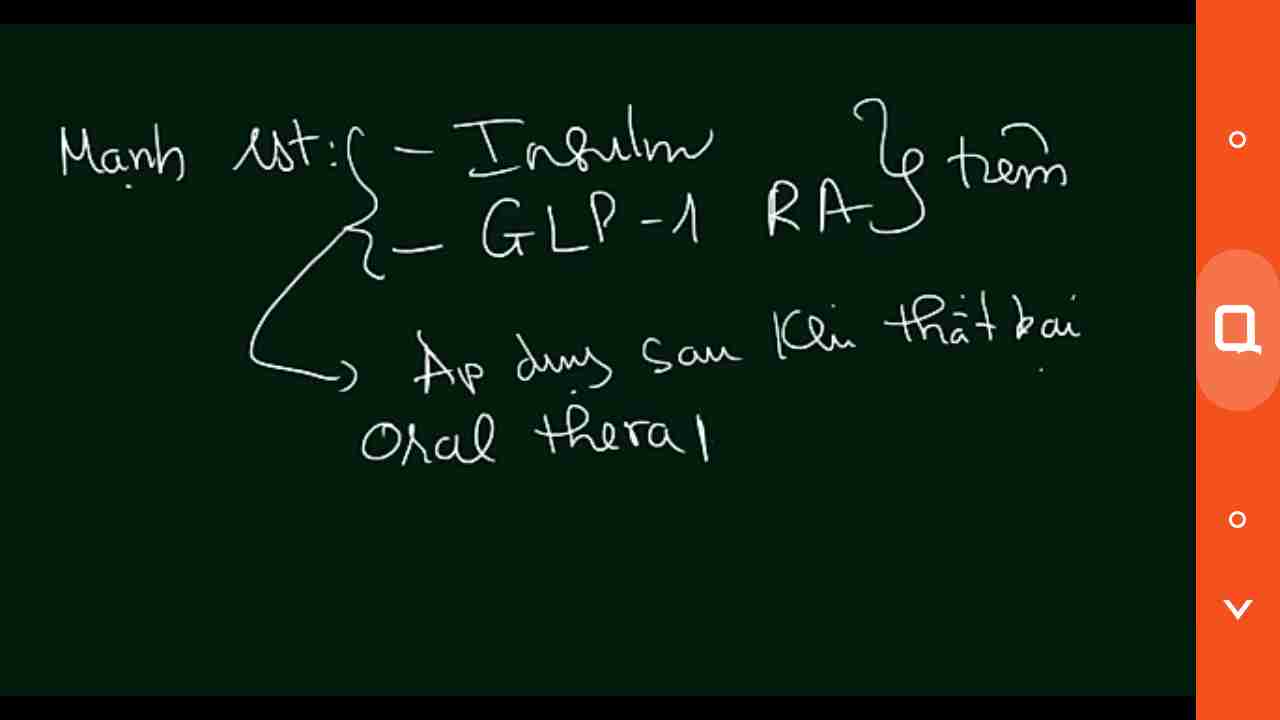 Mạnh nst: - Insulin } tiêm
- GLP-1 RA
Áp dụng sau khi thất bại
Oral thera